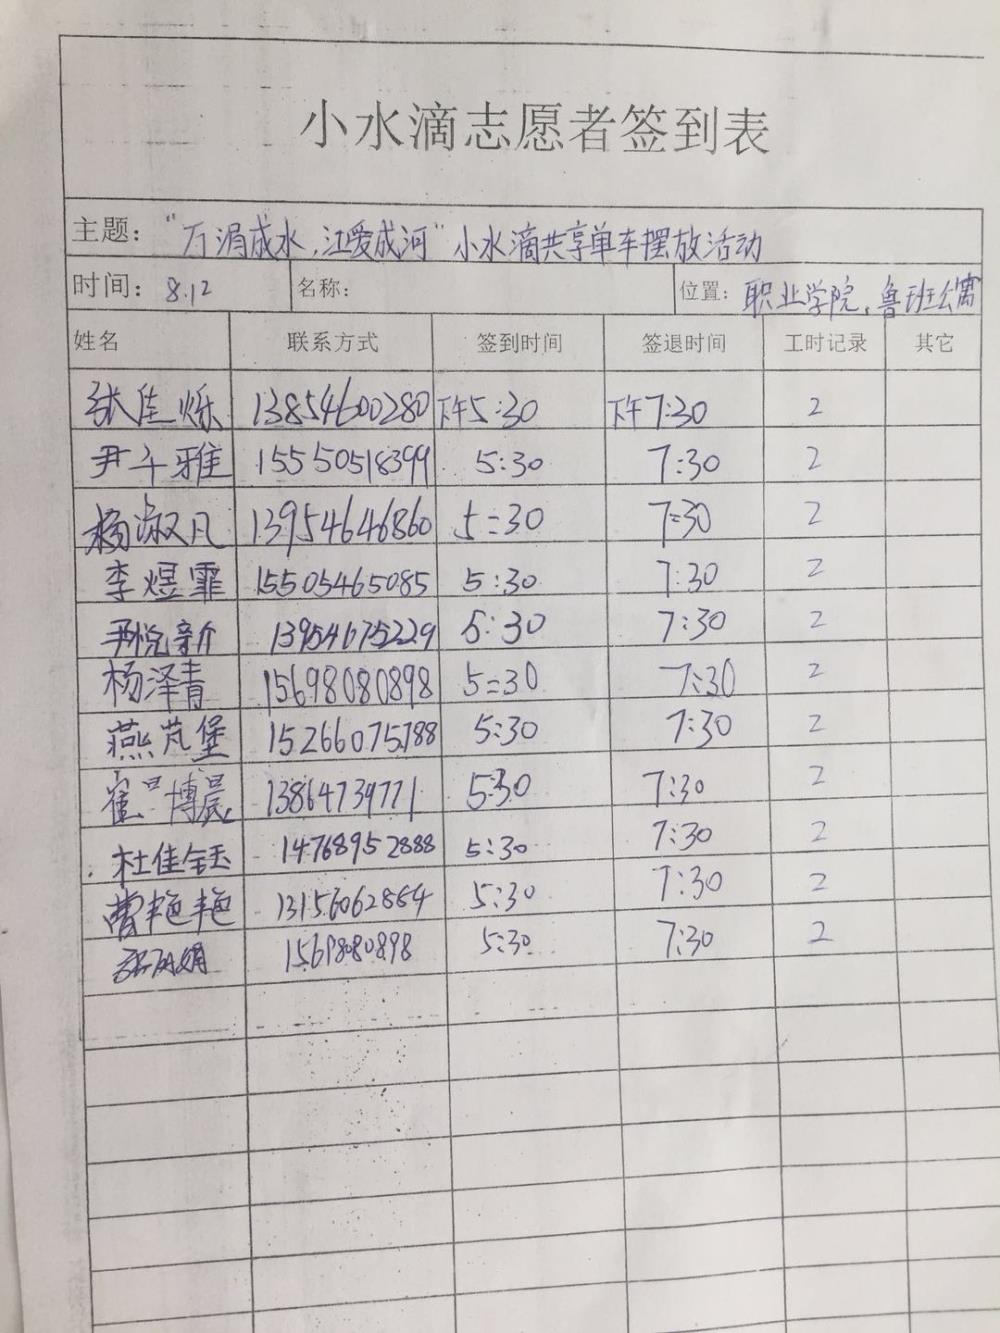 小水滴志愿者签到表
主题： “万涓成水，江爱成河”小水滴共享单车摆放活动
时间： 8.12 名称： 位置： 职业学院、鲁班公寓
姓名 联系方式 签到时间 签退时间 工时记录 其它
张佳烁 13854600280 下午5:30 下午7:30 2
尹千雅 15550518399 5:30 7:30 2
杨淑凡 13954646860 5:30 7:30 2
李煜霏 15505465085 5:30 7:30 2
尹悦新 13954675229 5:30 7:30 2
杨泽青 15698080898 5:30 7:30 2
燕芃堡 15266075788 5:30 7:30 2
崔博晨 13864739771 5:30 7:30 2
杜佳钰 14768952888 5:30 7:30 2
曹艳艳 13156062864 5:30 7:30 2
张丽娟 15698080898 5:30 7:30 2